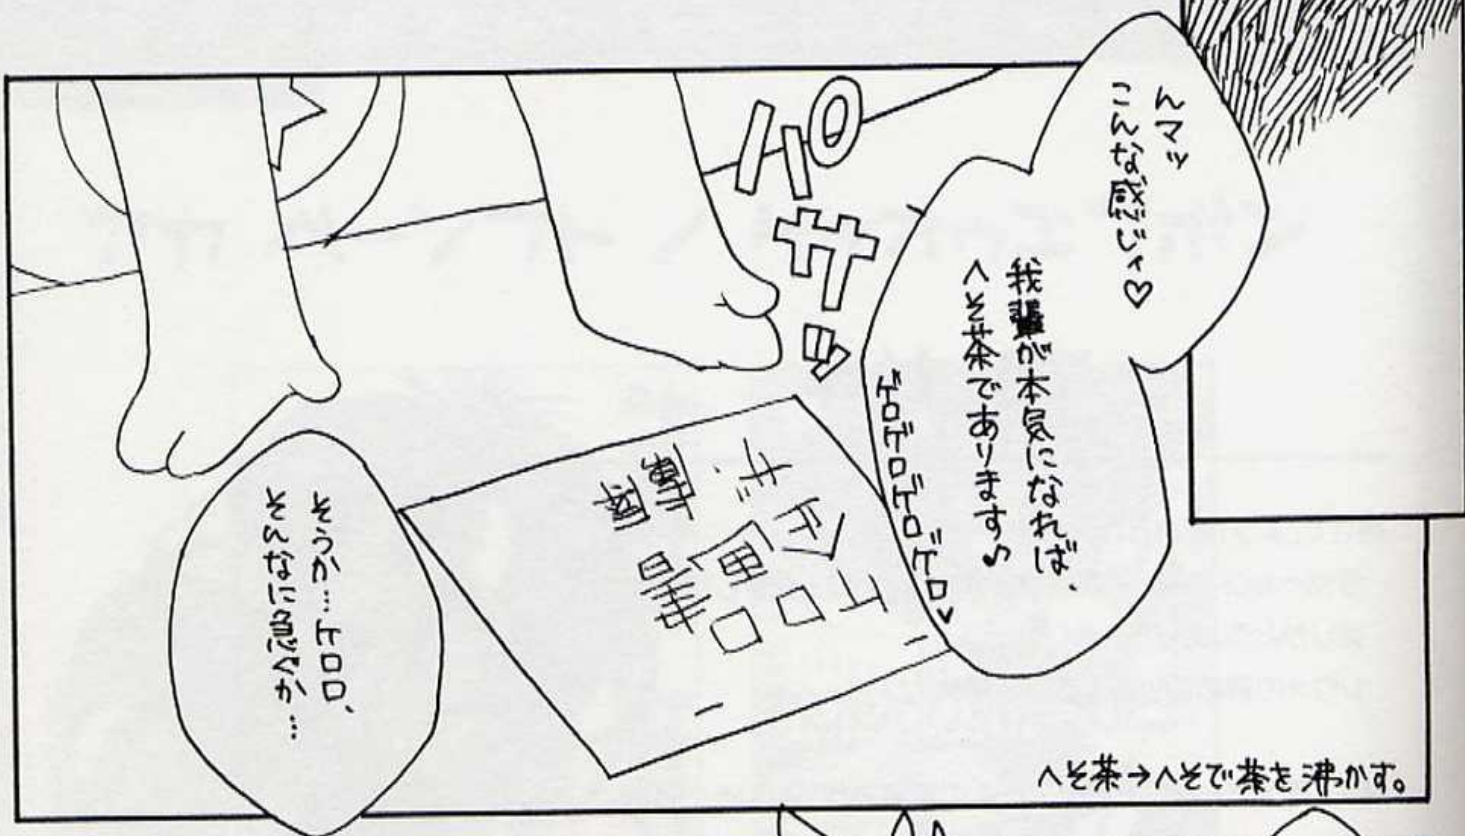 んマッ
こんな感じィ♡
我輩が本気になれば、
へそ茶であります♪
ゲロゲロゲロゲロ♥
パサッ
企画書
そうか…ケロロ、
そんなに急ぐか…
へそ茶→へそで茶を沸かす。